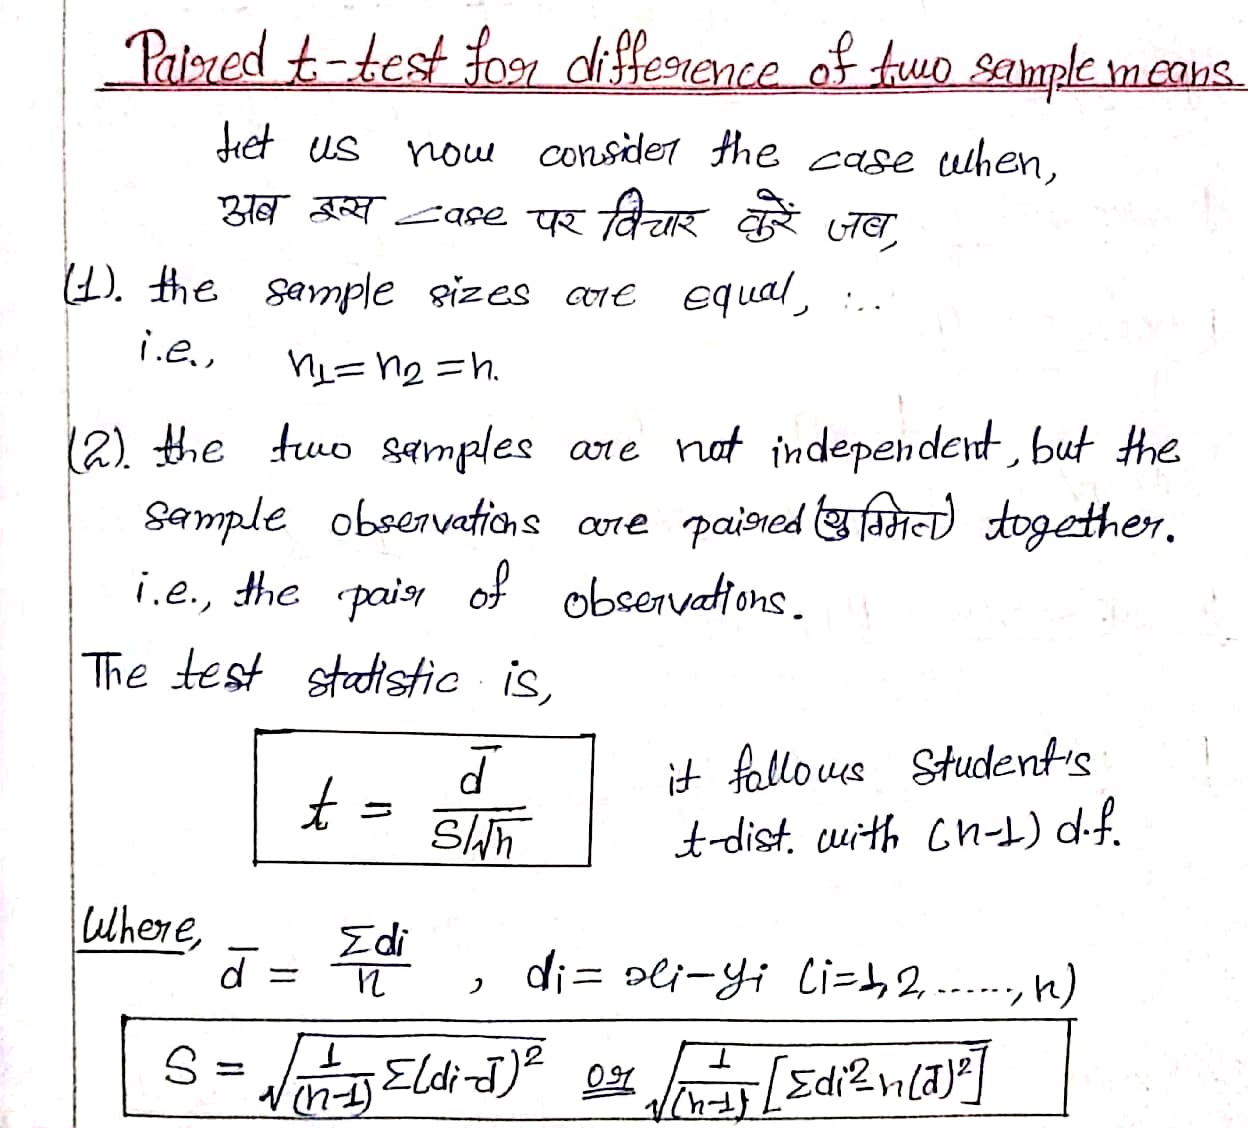 Paired t-test for difference of two sample means
Let us now consider the case when,
अब इस case पर विचार करें जब,
(1). the sample sizes are equal, :..
i.e., n₁=n₂=n.
(2). the two samples are not independent, but the
sample observations are paired (युग्मित) together.
i.e., the pair of observations.
The test statistic is,
t = d̄ / (S/√n) it follows Student's
t-dist. with (n-1) d.f.
Where,
d̄ = Σdi / n , di = xi-yi (i=1, 2, ......, n)
S = √(1/(n-1) Σ(di-d̄)²) or √(1/(n-1) [Σdi² n(d̄)²])